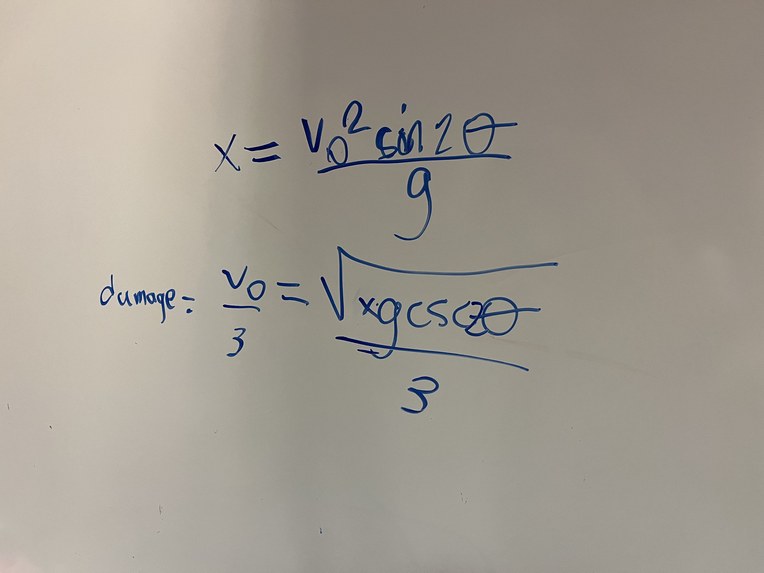 x = v₀² sin 2θ / g
damage = v₀ / 3 = √(xg csc 2θ) / 3